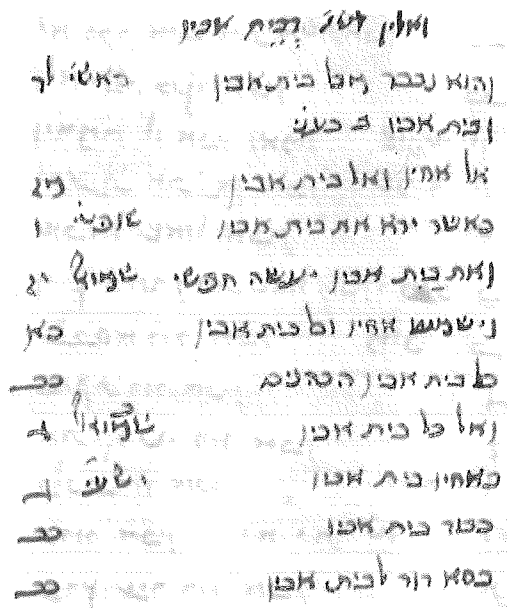 ואלין לשנ בית אביו
והוא נכבד מכל בית אביו בראשי לד
ובית אביו ב בעני
אל אחיו ואל בית אביו
כאשר ירא את בית אביו שופטי ו
ואת בית אביו יעשה חפשי שמואל יז
וישמעו אחיו וכל בית אביו כא
כל בית אביו הכהנים כב
ואל כל בית אביו שמואל ג
באחיו בית אביו ישעי ג
כבוד בית אביו כב
כסא לבית אביו כב